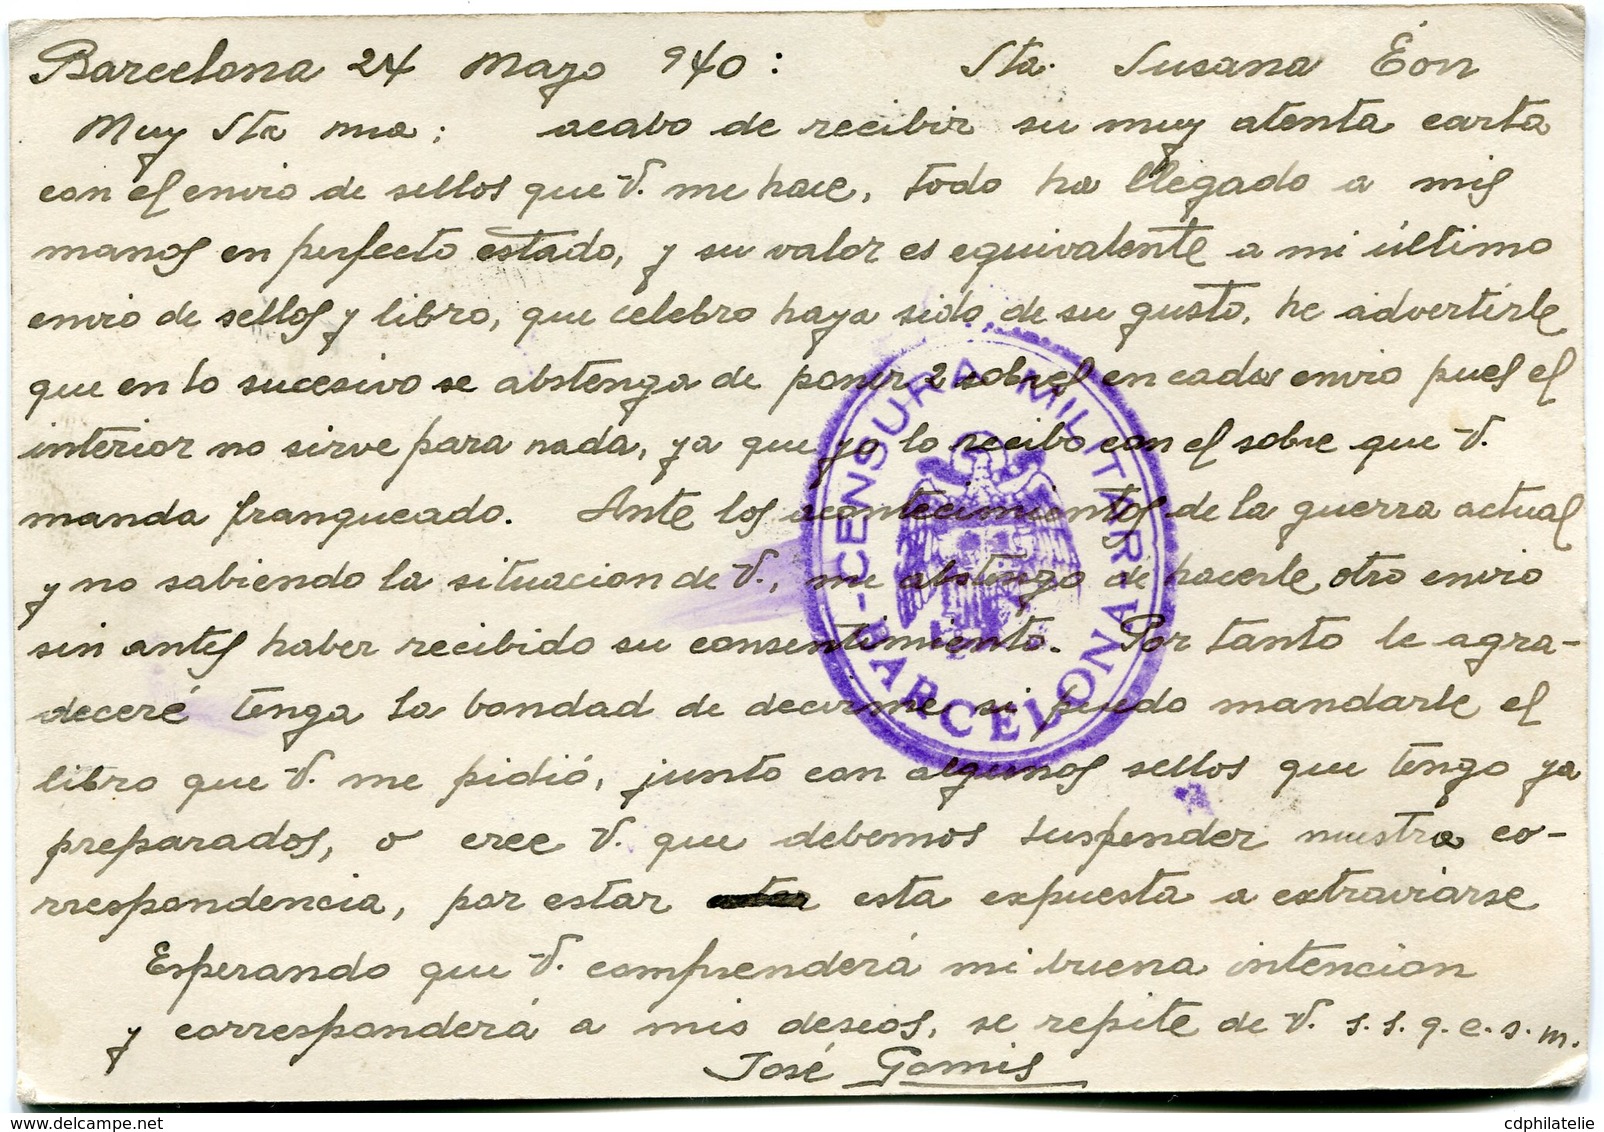 Barcelona 24 Mayo 940: Sta. Susana Eon
Muy Sta mia: acabo de recibir su muy atenta carta
con el envio de sellos que V. me hace, todo ha llegado a mis
manos en perfecto estado, y su valor es equivalente a mi último
envio de sellos y libro, que celebro haya sido de su gusto, he advertirle
que en lo sucesivo se abstenga de poner 2 sobres en cada envio pues el
interior no sirve para nada, ya que yo lo recibo con el sobre que V.
manda franqueado. Ante los acontecimientos de la guerra actual
y no sabiendo la situacion de V., me abstengo de hacerle otro envio
sin antes haber recibido su consentimiento. Por tanto le agra-
deceré tenga la bondad de decirme si puedo mandarle el
libro que V. me pidió, junto con algunos sellos que tengo ya
preparados, o cree V. que debemos suspender nuestra co-
rrespondencia, por estar esta expuesta a extraviarse
Esperando que V. comprenderá mi buena intencion
y corresponderá a mis deseos, se repite de V. s. s. q. e. s. m.
José Gomis
CENSURA MILITAR
- BARCELONA -
www.delcampe.net
cdphilatelie